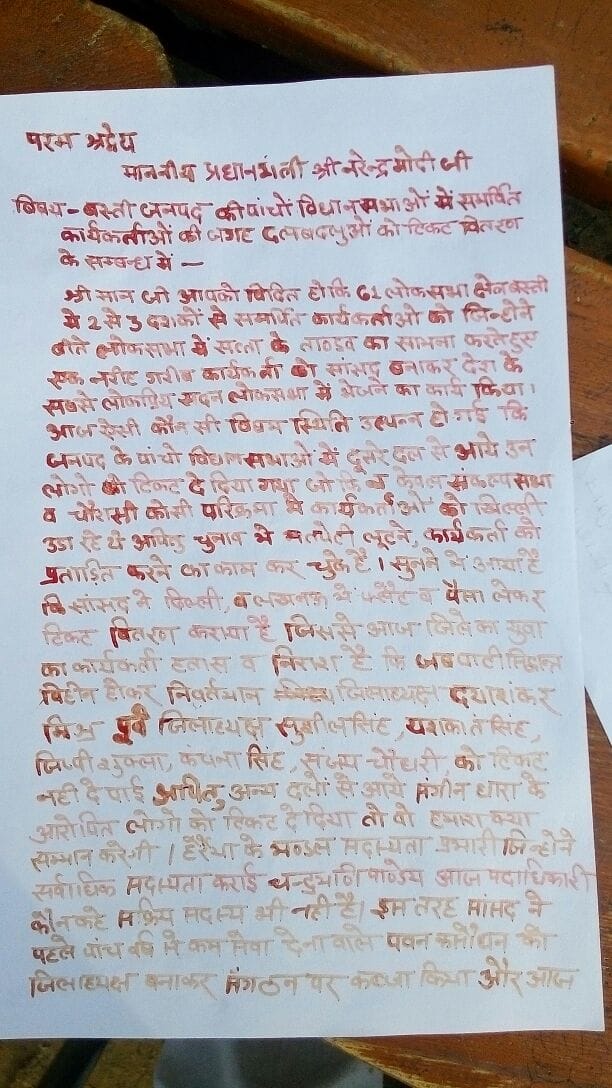 परम श्रद्धेय
माननीय प्रधानमंत्री श्री नरेन्द्र मोदी जी
विषय - बस्ती जनपद की पांचों विधान सभाओं में समर्पित
कार्यकर्ताओं की जगह दलबदलुओं को टिकट वितरण
के सम्बन्ध में —
श्री मान जी आपको विदित हो कि 61 लोकसभा क्षेत्र बस्ती
मे 2 से 3 दशकों से समर्पित कार्यकर्ताओ को जिन्होने
बीते लोकसभा में सत्ता के ताण्डव का सामना करते हुए
एक नरीह गरीब कार्यकर्ता को सांसद बनाकर देश के
सबसे लोकप्रिय सदन लोकसभा में भेजने का कार्य किया।
आज ऐसी कौन सी विषम स्थिति उत्पन्न हो गई कि
जनपद के पांचो विधान सभाओ में दूसरे दल से आये उन
लोगो को टिकट दे दिया गया जो कि न केवल संकल्प सभा
व चौरासी कोसी परिक्रमा मे कार्यकर्ताओं को खिल्ली
उडा रहे थे अपितु चुनाव मे मतपेटी लूटने, कार्यकर्ता को
प्रताड़ित करने का काम कर चुके है। सुनने मे आया है
कि सांसद ने दिल्ली, व लखनऊ मे फ्लैट व पैसा लेकर
टिकट वितरण कराया है जिससे आज जिले का युवा
का कार्यकर्ता हतास व निराश है कि जब पार्टी सिद्धान्त
विहीन होकर निवर्तमान जिलाध्यक्ष दयाशंकर
मिश्र पूर्व जिलाध्यक्ष सुशील सिंह, यशकांत सिंह,
जिप्पी शुक्ला, कंचना सिंह, संजय चौधरी, को टिकट
नही दे पाई अपितु अन्य दलों से आये संगीन धारा के
आरोपित लोगो को टिकट दे दिया तो वो हमारा क्या
सम्मान करेगी। हर्रैया के मण्डल सदस्यता प्रभारी जिन्होने
सर्वाधिक सदस्यता कराई चन्द्रमणि पाण्डेय आज पदाधिकारी
कौन कहे सक्रिय सदस्य भी नही है। इस तरह सांसद ने
पहले पांच वर्ष से कम सेवा देने वाले पवन कसौधन को
जिलाध्यक्ष बनाकर संगठन पर कब्जा किया और आज